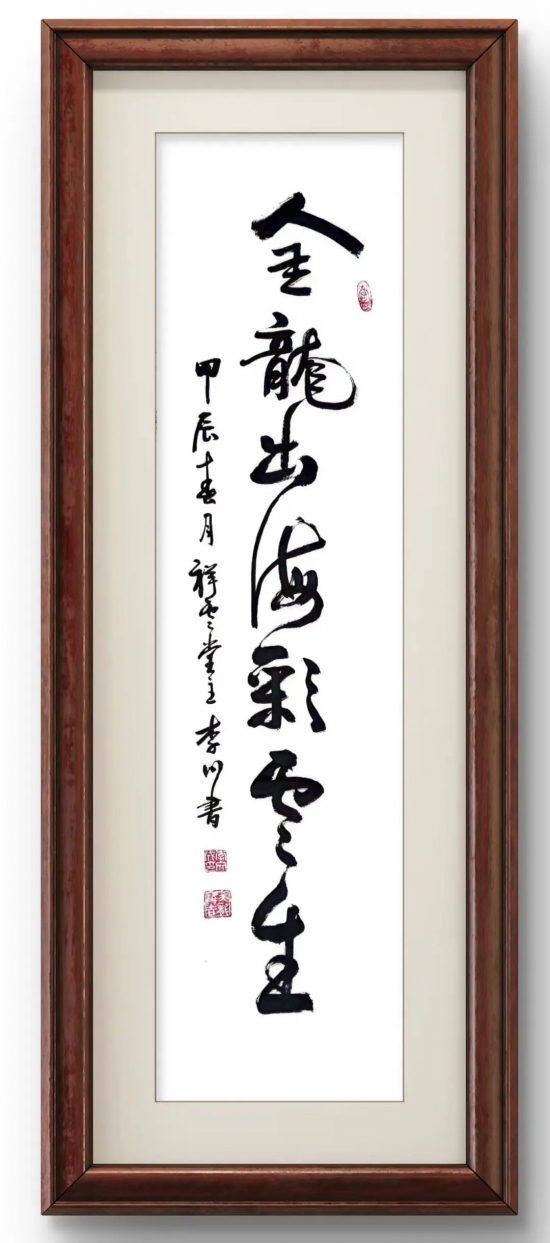 金龍出海彩雲生
甲辰春月祥雲堂主李川書